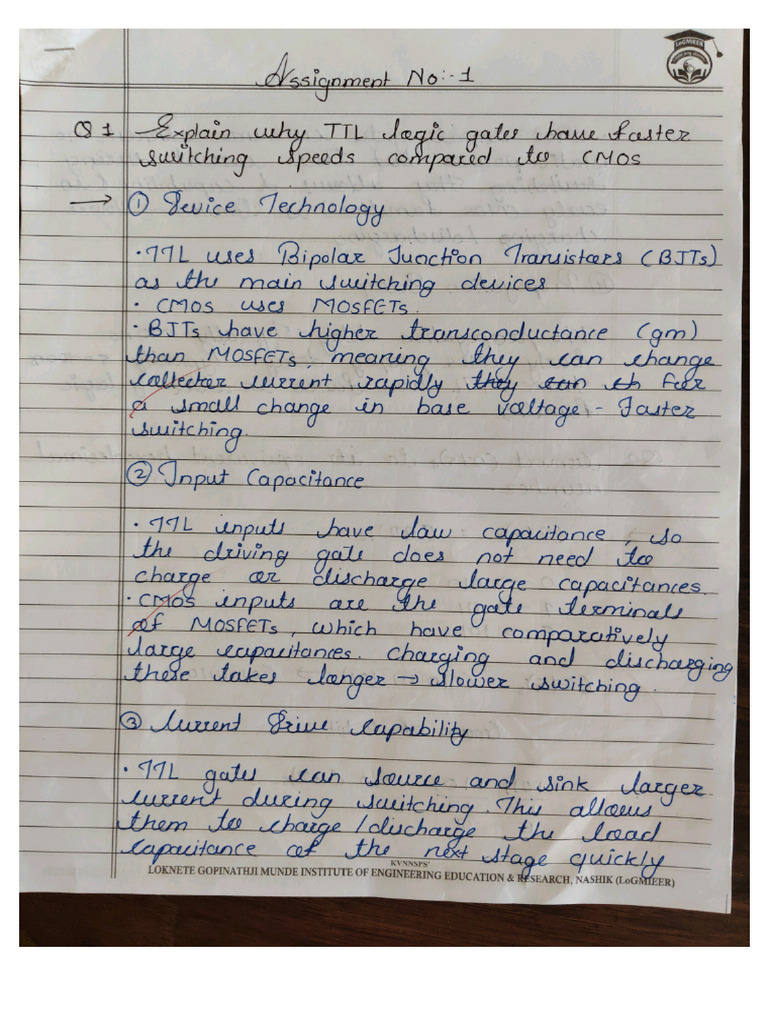 LoGMIEER
Assignment No:- 1
Q 1 Explain why TTL logic gates have faster
switching speeds compared to CMOS
→ ① Device Technology
· TTL uses Bipolar Junction Transistors (BJTs)
as the main switching devices
· CMOS uses MOSFETs.
· BJTs have higher transconductance (gm)
than MOSFETs, meaning they can change
collector current rapidly they can ch for
a small change in base voltage - Faster
switching.
② Input Capacitance
· TTL inputs have low capacitance, so
the driving gate does not need to
charge or discharge large capacitances.
· CMOS inputs are the gate terminals
of MOSFETs, which have comparatively
large capacitances. Charging and discharging
these takes longer → slower switching.
③ Current Drive Capability
· TTL gates can source and sink larger
current during switching. This allows
them to charge/discharge the load
capacitance of the next stage quickly
KVNNSPS'
LOKNETE GOPINATHJI MUNDE INSTITUTE OF ENGINEERING EDUCATION & RESEARCH, NASHIK (LoGMIEER)